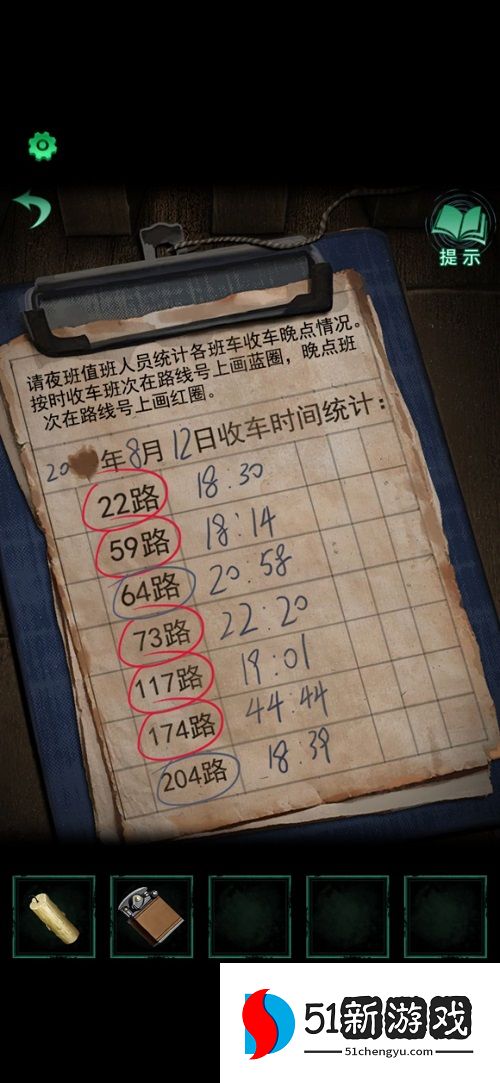 提示
请夜班值班人员统计各班车收车晚点情况。
按时收车班次在路线号上画蓝圈，晚点班
次在路线号上画红圈。
20 年8月12日收车时间统计：
22路 18:30
59路 18:14
64路 20:58
73路 22:20
117路 19:01
174路 44:44
204路 18:39
51新游戏
www.51chengyu.com